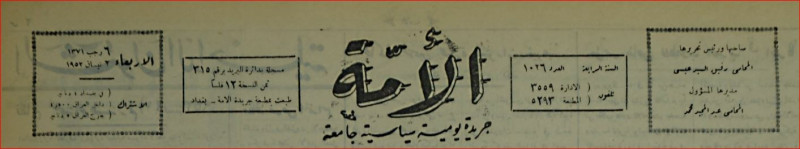 صاحبها ورئيس تحريرها
المحامي رفيق السيد عيسى
مديرها المسؤول
المحامي عبد المجيد محمد
السنة الرابعة العدد ١٠٢٦
تلفون ( الادارة ٣٥٥٩
( المطبعة ٥٢٩٣
الأمة
جريدة يومية سياسية جامعة
مسجلة بدائرة البريد برقم ٣١٥
ثمن النسخة ١٢ فلساً
طبعت بمطبعة جريدة الامة - بغداد
الاربعاء
٦ رجب ١٣٧١
٢ نيسان ١٩٥٢
الاشتراك